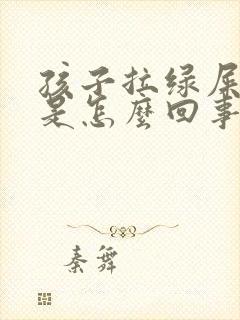 孩子拉绿屎
是怎麽回事
秦舞